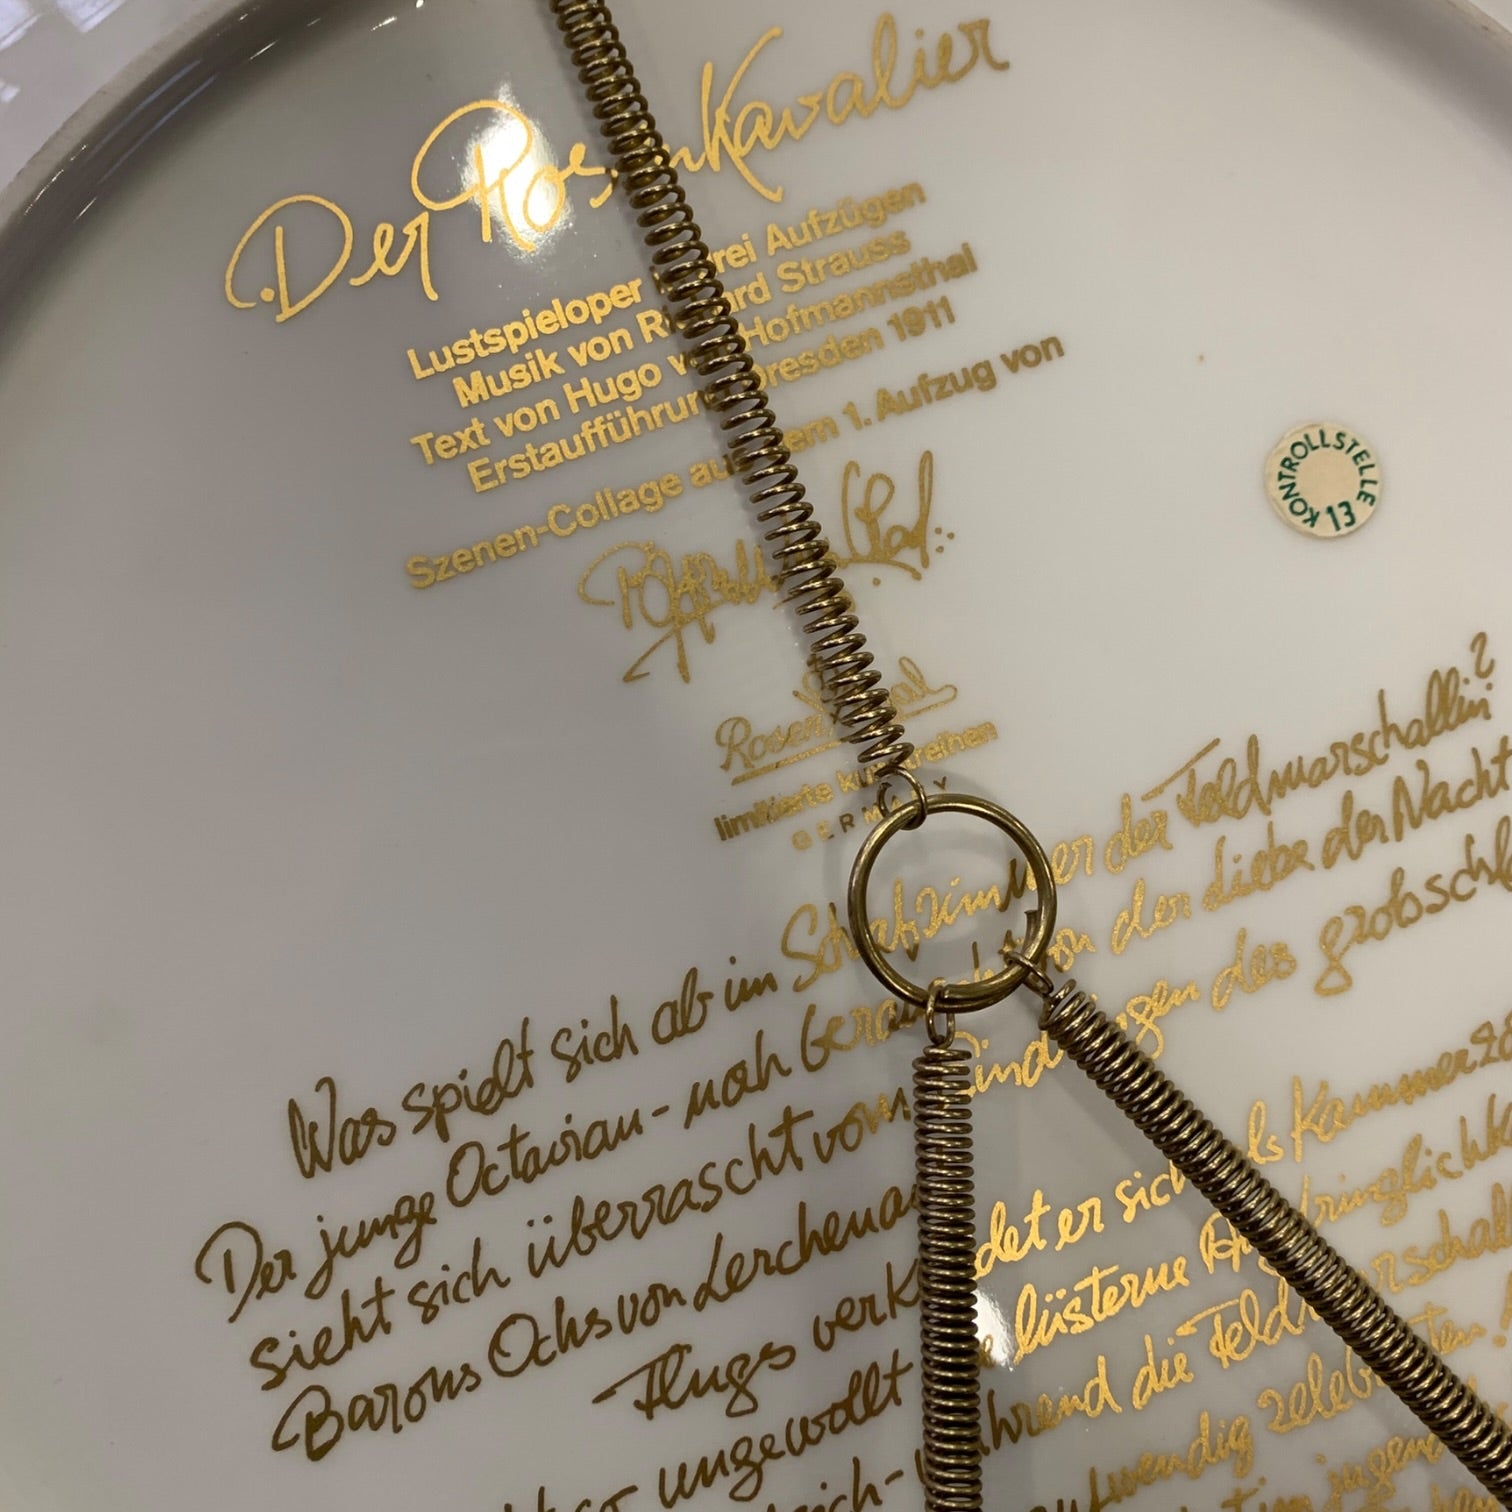 Der Rosenkavalier
Lustspieloper rei Aufzügen
Musik von Richard Strauss
Text von Hugo v Hofmannsthal
Erstaufführung Dresden 1911
Szenen-Collage aus dem 1. Aufzug von
KONTROLLSTELLE 13
Rosenthal
limitierte kunstreihen
GERMANY
Was spielt sich ab im Schlafzimmer der Feldmarschallin?
Der junge Octavian - noch berauscht von der Liebe der Nacht
sieht sich überrascht vom Eindringen des grobschl
Barons Ochs von Lerchenau
Flugs verkleidet er sich als Kammerzo
ungewollt lüsterne
während die Feldmarschall
aufwendig zeleb